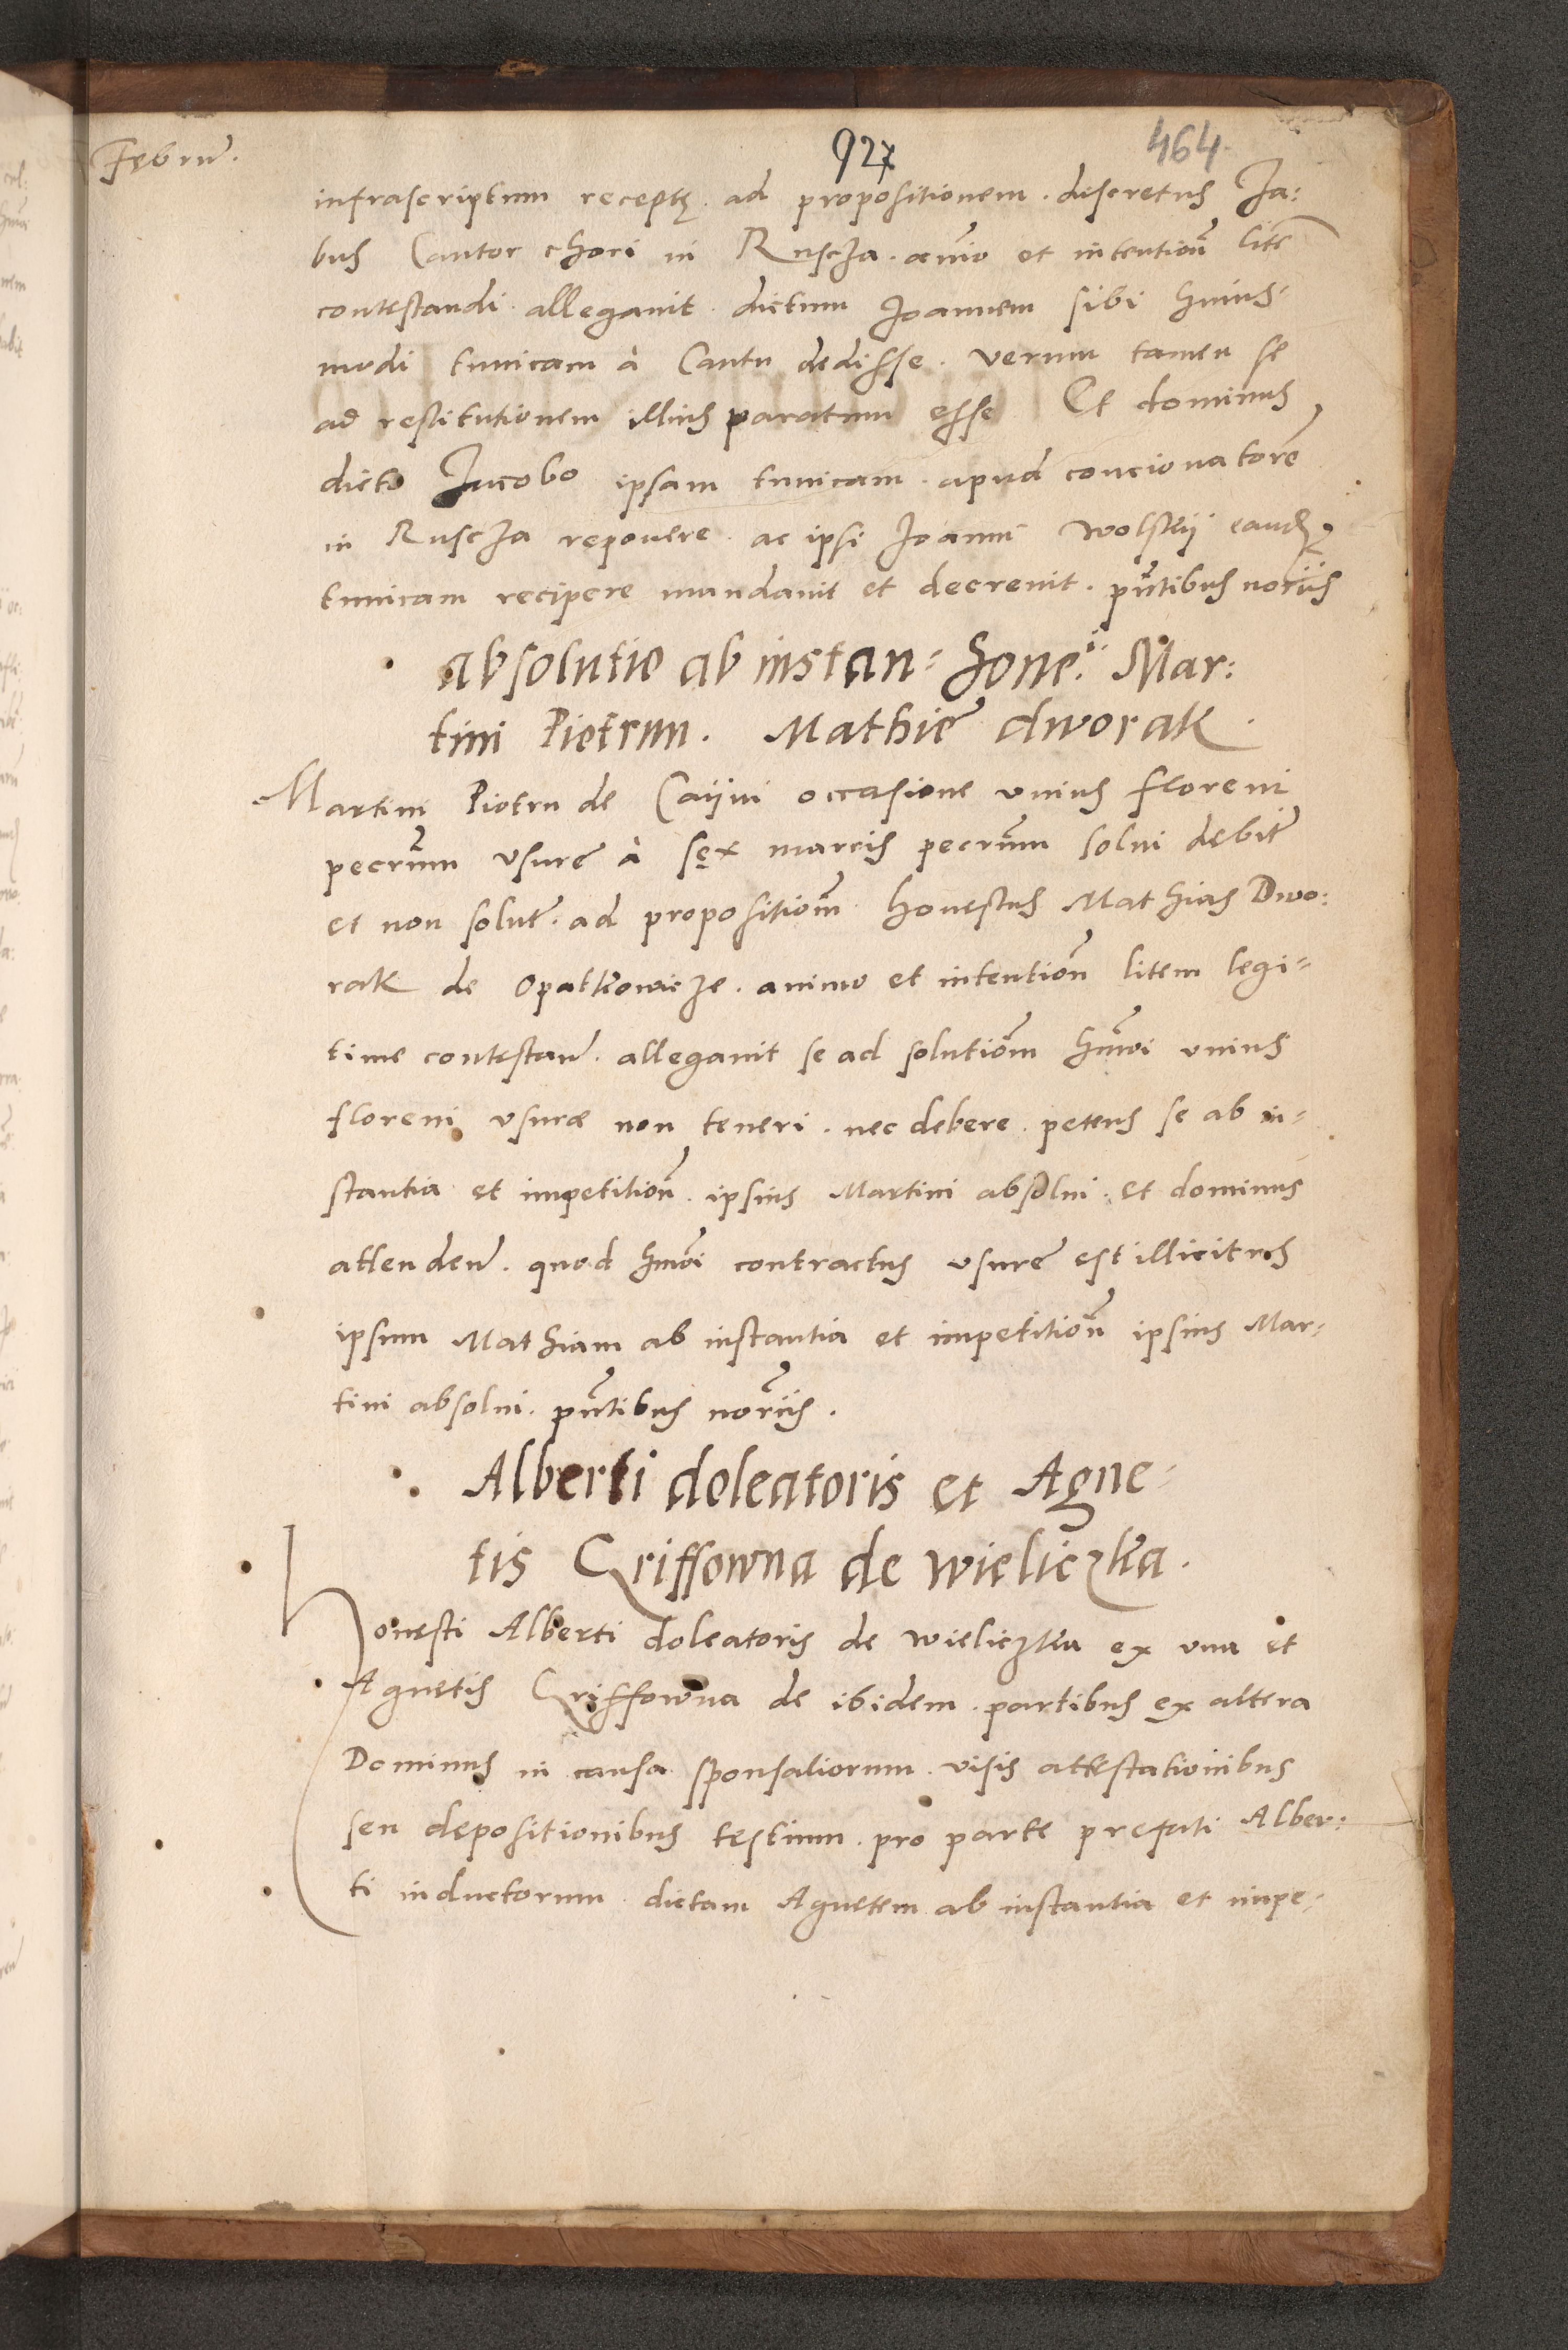 Februar̃.
927
464
infrascriptum recept̨. ad propositionem. discretus Ja:
bus Cantor chori in Ruscza. animo et intention̄ litē
contestandi. allegavit. dictum Joannem sibi huius-
modi tunicam à Cantu dedisse. verum tamen se
ad restitutionem illius paratum esse Et dominus
dicto Jacobo ipsam tunicam. apud concionatorē
in Ruscza reponere. ac ipsi Joanni Wolskij eand̨
tunicam recipere mandavit et decrevit. pñtibus noriis
absolutio ab instan= hone.ⁱ Mar:
tini Pietrun. Mathię dworak.
Martini Piotru de Cayni occasione unius floreni
pecrum̄ usurę à sęx marcis pecrum̄ solvi debit̃
et non solut̃. ad proposition̄m honestus Mathias Dwo:
rak de Opatkowicze. animo et intention̄ litem legi=
time contestan̄. allegavit se ad solution̄m hmōi unius
floreni usuræ non teneri. nec debere. petens se ab in=
stantia et impetition̄. ipsius Martini absolvi. et dominus
attenden̄. quod hmōi contractus usurę est illicitus
ipsum Mathiam ab instantia et impetition̄ ipsius Mar=
tini absolvi. pñtibus noriis.
Alberti doleatoris et Agne=
tis Griffowna de Wieliczka.
Honesti Alberti doleatoris de Wieliczka ex una et
Agnetis Griffowna de ibidem. partibus ęx altera
Dominus in causa sponsaliorum. visis attestationibus
seu depositionibus testium. pro parte prefati Alber:
ti inductorum. dictam Agnetem ab instantia et impe=